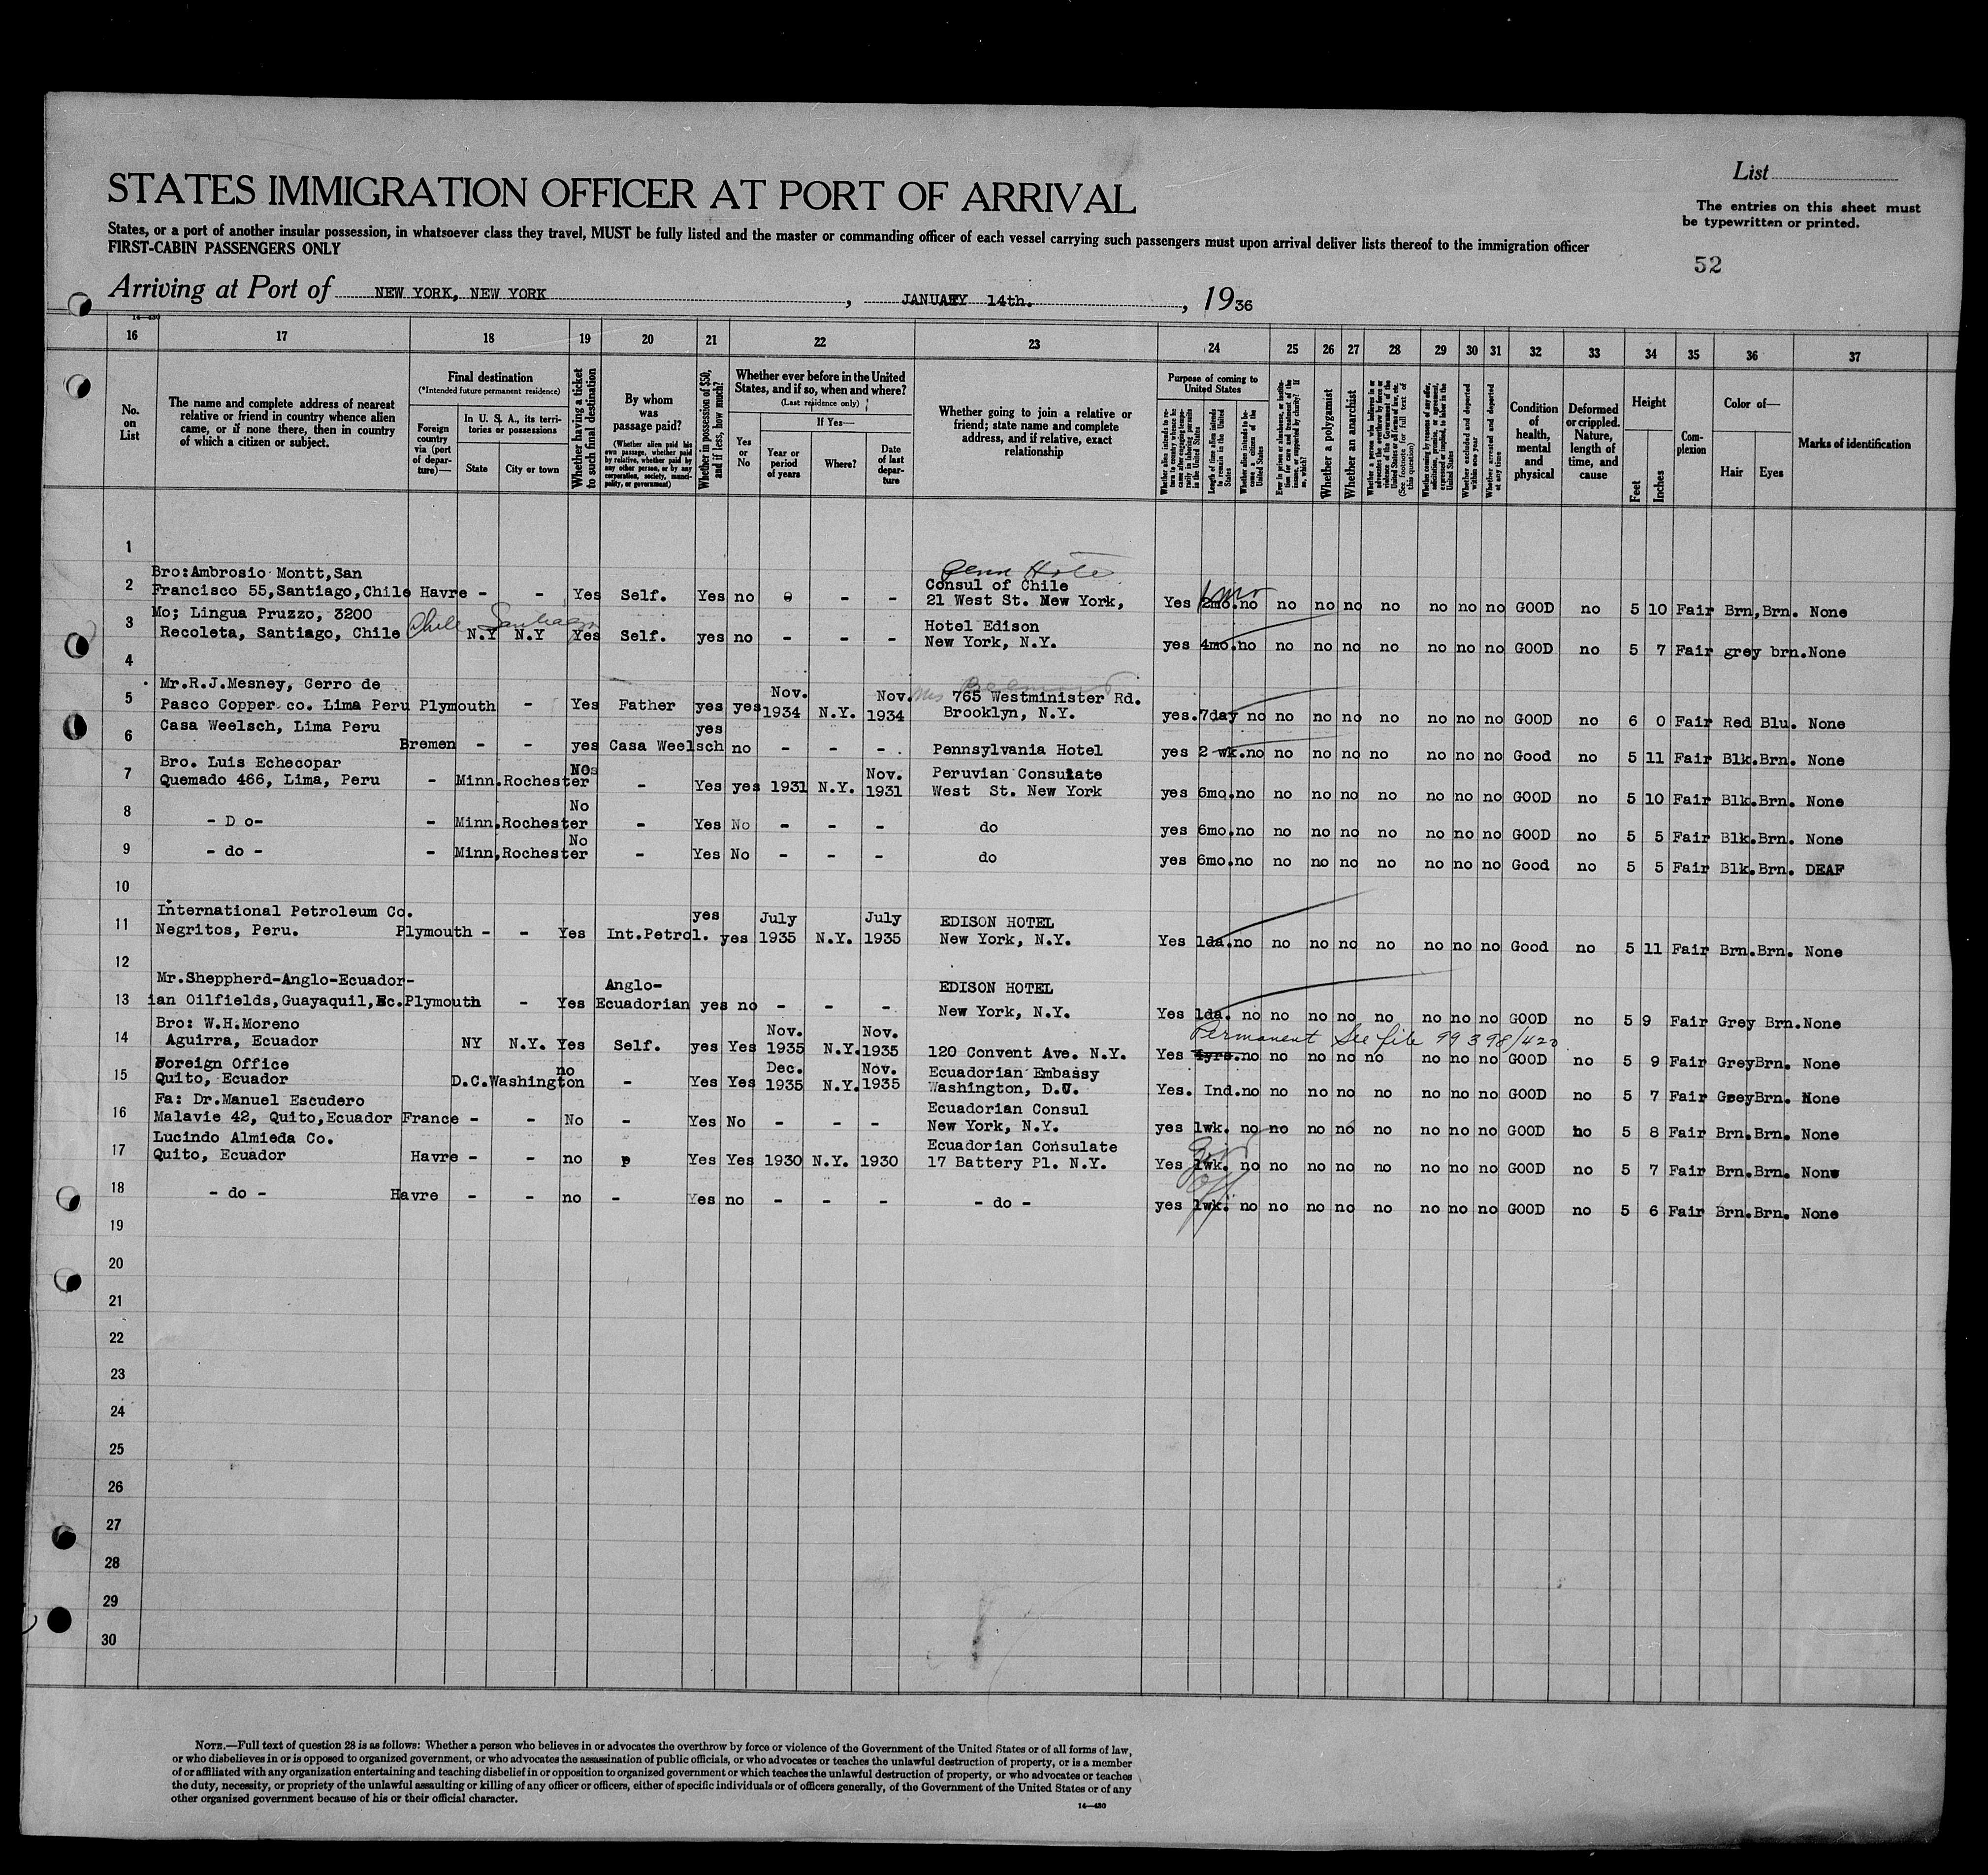 STATES IMMIGRATION OFFICER AT PORT OF ARRIVAL
List
The entries on this sheet must
be typewritten or printed.
States, or a port of another insular possession, in whatsoever class they travel, MUST be fully listed and the master or commanding officer of each vessel carrying such passengers must upon arrival deliver lists thereof to the immigration officer
FIRST-CABIN PASSENGERS ONLY
52
Arriving at Port of NEW YORK, NEW YORK, JANUARY 14th., 1936
14—430
16 17 18 19 20 21 22 23 24 25 26 27 28 29 30 31 32 33 34 35 36 37
No. on List
The name and complete address of nearest relative or friend in country whence alien came, or if none there, then in country of which a citizen or subject.
Final destination
(*Intended future permanent residence)
Foreign country via (port of departure)—
In U. S. A., its territories or possessions
State
City or town
Whether having a ticket to such final destination
By whom was passage paid?
(Whether alien paid his own passage, whether paid by relative, whether paid by any other person, or by any corporation, society, municipality, or government)
Whether in possession of $50, and if less, how much?
Whether ever before in the United States, and if so, when and where?
(Last residence only)
Yes or No
If Yes—
Year or period of years
Where?
Date of last departure
Whether going to join a relative or friend; state name and complete address, and if relative, exact relationship
Purpose of coming to United States
Length of time alien intends to remain in the United States
Whether alien intends to become a citizen of the United States
Whether a polygamist
Whether an anarchist
Whether excluded and deported within one year
Whether arrested and deported at any time
Condition of health, mental and physical
Deformed or crippled. Nature, length of time, and cause
Height
Feet
Inches
Complexion
Color of—
Hair
Eyes
Marks of identification
1
Bro:Ambrosio Montt,San Consul of Chile
2 Francisco 55,Santiago,Chile Havre - - Yes Self. Yes no - - 21 West St. New York, Yes 2mo. no no no no no no no no GOOD no 5 10 Fair Brn,Brn. None
Mo; Lingua Pruzzo, 3200 Chile Santiago Hotel Edison
3 Recoleta, Santiago, Chile N.Y N.Y Yes Self. yes no - - - New York, N.Y. yes 4mo.no no no no no no no no GOOD no 5 7 Fair grey brn.None
4
Mr.R.J.Mesney, Cerro de Nov. Nov.
5 Pasco Copper co. Lima Peru Plymouth - Yes Father yes yes 1934 N.Y. 1934 765 Westminister Rd. Brooklyn, N.Y. yes.7day no no no no no no no no GOOD no 6 0 Fair Red Blu. None
Casa Weelsch, Lima Peru yes
6 Bremen - - yes Casa Weelsch no - - - Pennsylvania Hotel yes 2 wk.no no no no no no no no Good no 5 11 Fair Blk.Brn. None
Bro. Luis Echecopar Nov. Peruvian Consulate
7 Quemado 466, Lima, Peru - Minn.Rochester - Yes yes 1931 N.Y. 1931 West St. New York yes 6mo.no no no no no no no no GOOD no 5 10 Fair Blk.Brn. None
No
8 - D o- - Minn.Rochester - Yes No - - - do yes 6mo.no no no no no no no no GOOD no 5 5 Fair Blk.Brn. None
No
9 - do - - Minn,Rochester - Yes No - - - do yes 6mo.no no no no no no no no Good no 5 5 Fair Blk.Brn. DEAF
10
International Petroleum Co. yes July July EDISON HOTEL
11 Negritos, Peru. Plymouth - - Yes Int.Petrol. yes 1935 N.Y. 1935 New York, N.Y. Yes 1da.no no no no no no no no Good no 5 11 Fair Brn.Brn. None
12
Mr.Sheppherd-Anglo-Ecuador- Anglo- EDISON HOTEL
13 ian Oilfields,Guayaquil,Ec.Plymouth - Yes Ecuadorian yes no - - - New York, N.Y. Yes 1da. no no no no no no no no GOOD no 5 9 Fair Grey Brn.None
Bro: W.H.Moreno Nov. Nov. Permanent See file 99398/420
14 Aguirra, Ecuador NY N.Y. Yes Self. yes Yes 1935 N.Y.1935 120 Convent Ave. N.Y. Yes 4yrs.no no no no no no no no GOOD no 5 9 Fair GreyBrn. None
Foreign Office no Dec. Nov. Ecuadorian Embassy
15 Quito, Ecuador D.C.Washington - Yes Yes 1935 N.Y.1935 Washington, D.C. Yes. Ind.no no no no no no no no GOOD no 5 7 Fair GreyBrn. None
Fa: Dr.Manuel Escudero Ecuadorian Consul
16 Malavie 42, Quito,Ecuador France - - No - Yes No - - - New York, N.Y. yes 1wk. no no no no no no no no GOOD no 5 8 Fair Brn.Brn. None
Lucindo Almieda Co. Ecuadorian Consulate
17 Quito, Ecuador Havre - - no Yes Yes 1930 N.Y. 1930 17 Battery Pl. N.Y. Yes 1wk. no no no no no no no no GOOD no 5 7 Fair Brn.Brn. None
18 - do - Havre - - no - Yes no - - - - do - yes 1wk. no no no no no no no no GOOD no 5 6 Fair Brn.Brn. None
19
20
21
22
23
24
25
26
27
28
29
30
NOTE.—Full text of question 28 is as follows: Whether a person who believes in or advocates the overthrow by force or violence of the Government of the United States or of all forms of law,
or who disbelieves in or is opposed to organized government, or who advocates the assassination of public officials, or who advocates or teaches the unlawful destruction of property, or is a member
of or affiliated with any organization entertaining and teaching disbelief in or opposition to organized government or which teaches the unlawful destruction of property, or who advocates or teaches
the duty, necessity, or propriety of the unlawful assaulting or killing of any officer or officers, either of specific individuals or of officers generally, of the Government of the United States or of any
other organized government because of his or their official character.
14—430